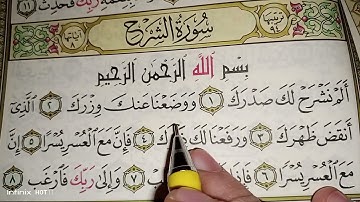 فَحَدِّثْ ١١
ترتيبها ٩٤ سُورَةُ الشَّرْحِ آياتها ٨
بِسْمِ اللَّهِ الرَّحْمَنِ الرَّحِيمِ
أَلَمْ نَشْرَحْ لَكَ صَدْرَكَ ١ وَوَضَعْنَا عَنكَ وِزْرَكَ ٢ الَّذِي
أَنقَضَ ظَهْرَكَ ٣ وَرَفَعْنَا لَكَ ذِكْرَكَ ٤ فَإِنَّ مَعَ الْعُسْرِ يُسْرًا ٥ إِنَّ
مَعَ الْعُسْرِ يُسْرًا ٦ ٧ وَإِلَى رَبِّكَ فَارْغَب ٨
Infinix HOT 11